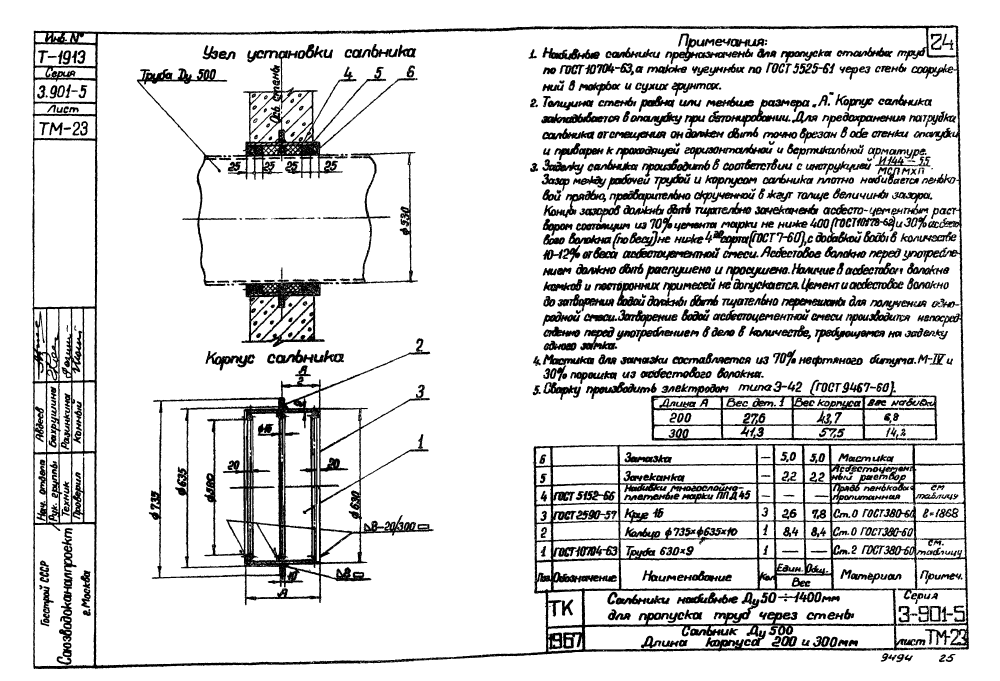 Инв. №
Т-1913
Серия
3.901-5
Лист
ТМ-23
Узел установки сальника
Труба Ду 500
Ось стены
4 5 6
25 25 25 25
ф530
Корпус сальника
А
2
2
3
1
ф735
ф635
ф630
20
20
10
А
Примечания:
24
1. Набивные сальники предназначены для пропуска стальных труб
по ГОСТ 10704-63, а также чугунных по ГОСТ 5525-61 через стены сооруже-
ний в мокрых и сухих грунтах.
2. Толщина стены равна или меньше размера „А". Корпус сальника
закладывается в опалубку при бетонировании. Для предохранения патрубка
сальника от смещения он должен быть точно врезан в обе стенки опалубки
и приварен к проходящей горизонтальной и вертикальной арматуре.
3. Заделку сальника производить в соответствии с инструкцией И144-55
МСПМХП
Зазор между рабочей трубой и корпусом сальника плотно набивается пенько-
вой прядью, предварительно скрученной в жгут толще величины зазора.
Концы зазоров должны быть тщательно зачеканены асбесто-цементным раст-
вором состоящим из 70% цемента марки не ниже 400 (ГОСТ 10178-62) и 30% асбесто-
вого волокна (по весу) не ниже 4го сорта (ГОСТ 7-60), с добавкой воды в количестве
10-12% от веса асбестоцементной смеси. Асбестовое волокно перед употребле-
нием должно быть распушено и просушено. Наличие в асбестовом волокне
комков и посторонних примесей не допускается. Цемент и асбестовое волокно
до затворения водой должны быть тщательно перемешаны для получения одно-
родной смеси. Затворение водой асбестоцементной смеси производится непосред-
ственно перед употреблением в дело в количестве, требующемся на заделку
одного замка.
4. Мастика для замазки составляется из 70% нефтяного битума. М-IV и
30% порошка из асбестового волокна.
5. Сварку производить электродом типа Э-42 (ГОСТ 9467-60).
Длина А Вес дет. 1 Вес корпуса Вес набивки
200 27,6 43,7 6,8
300 41,3 57,5 14,2
6 Замазка — 5,0 5,0 Мастика
5 Зачеканка — 2,2 2,2 Асбестоцемент-
ный раствор
4 ГОСТ 5152-66 Набивки многослойно-
плетеные марки ПП Д45 — — — Прядь пеньковая
пропитанная см
таблицу
3 ГОСТ 2590-57 Круг 16 3 2,6 7,8 Ст.0 ГОСТ380-60 ℓ=1868
2 Кольцо ф735×ф635×10 1 8,4 8,4 Ст.0 ГОСТ380-60
1 ГОСТ 10704-63 Труба 630×9 1 — — Ст.2 ГОСТ380-60 см.
таблицу
Поз. Обозначение Наименование Кол Един. Общ.
Вес Материал Примеч.
Нач. отдела Авдеев
Рук. группы Бахрушина
Техник
Проверил
Госстрой СССР
Союзводоканалпроект
г. Москва
ТК
1967
Сальники набивные Ду 50÷1400мм
для пропуска труб через стены
Сальник Ду 500
Длина корпуса 200 и 300мм
Серия
3-901-5
лист ТМ-23
9494 25